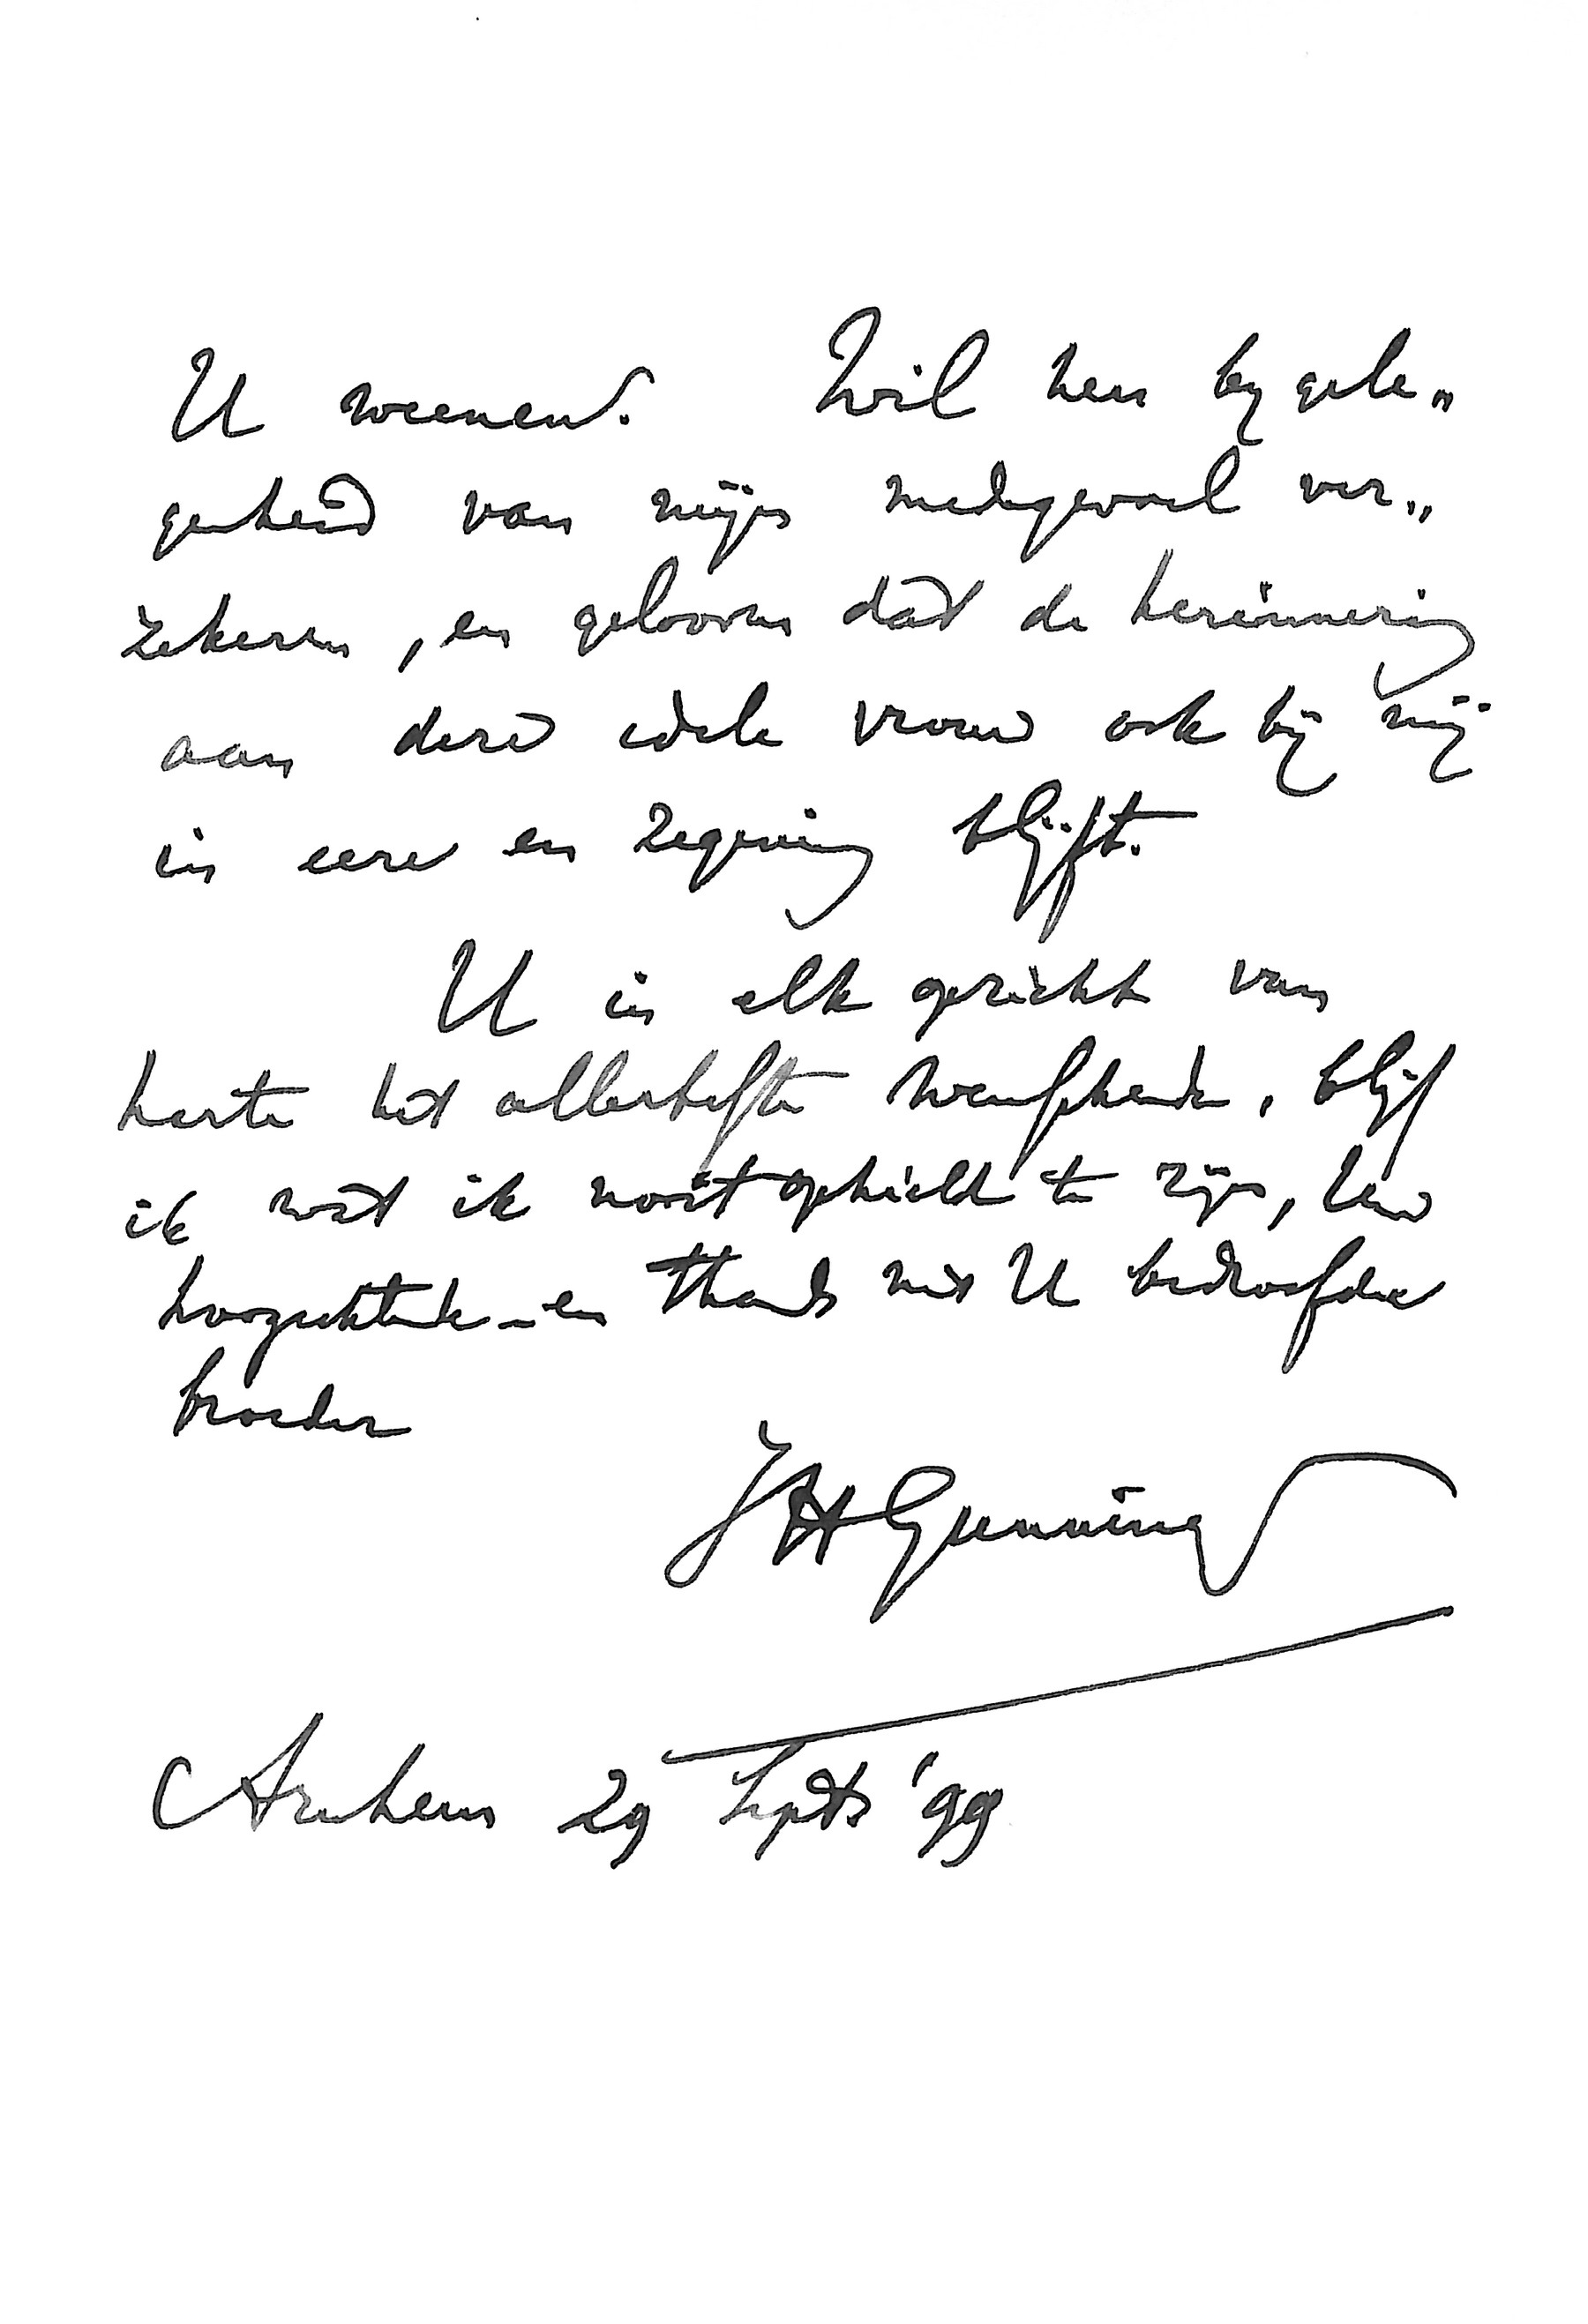 U weenen. Wil hen by gele„
genheid van mijn medegevoel ver„
zekeren, en gelooven dat de herinnering
aan deze edele vrouw ook bij mij
in eere en zegening blijft.
U in elk opzicht van
harte het allerbeste wenschende, blijf
ik wat ik nooit ophield te zijn, Uw
hoogachtende - en thands met U bedroefde
broeder
JHGunning
Arnhem 29 Septr '99